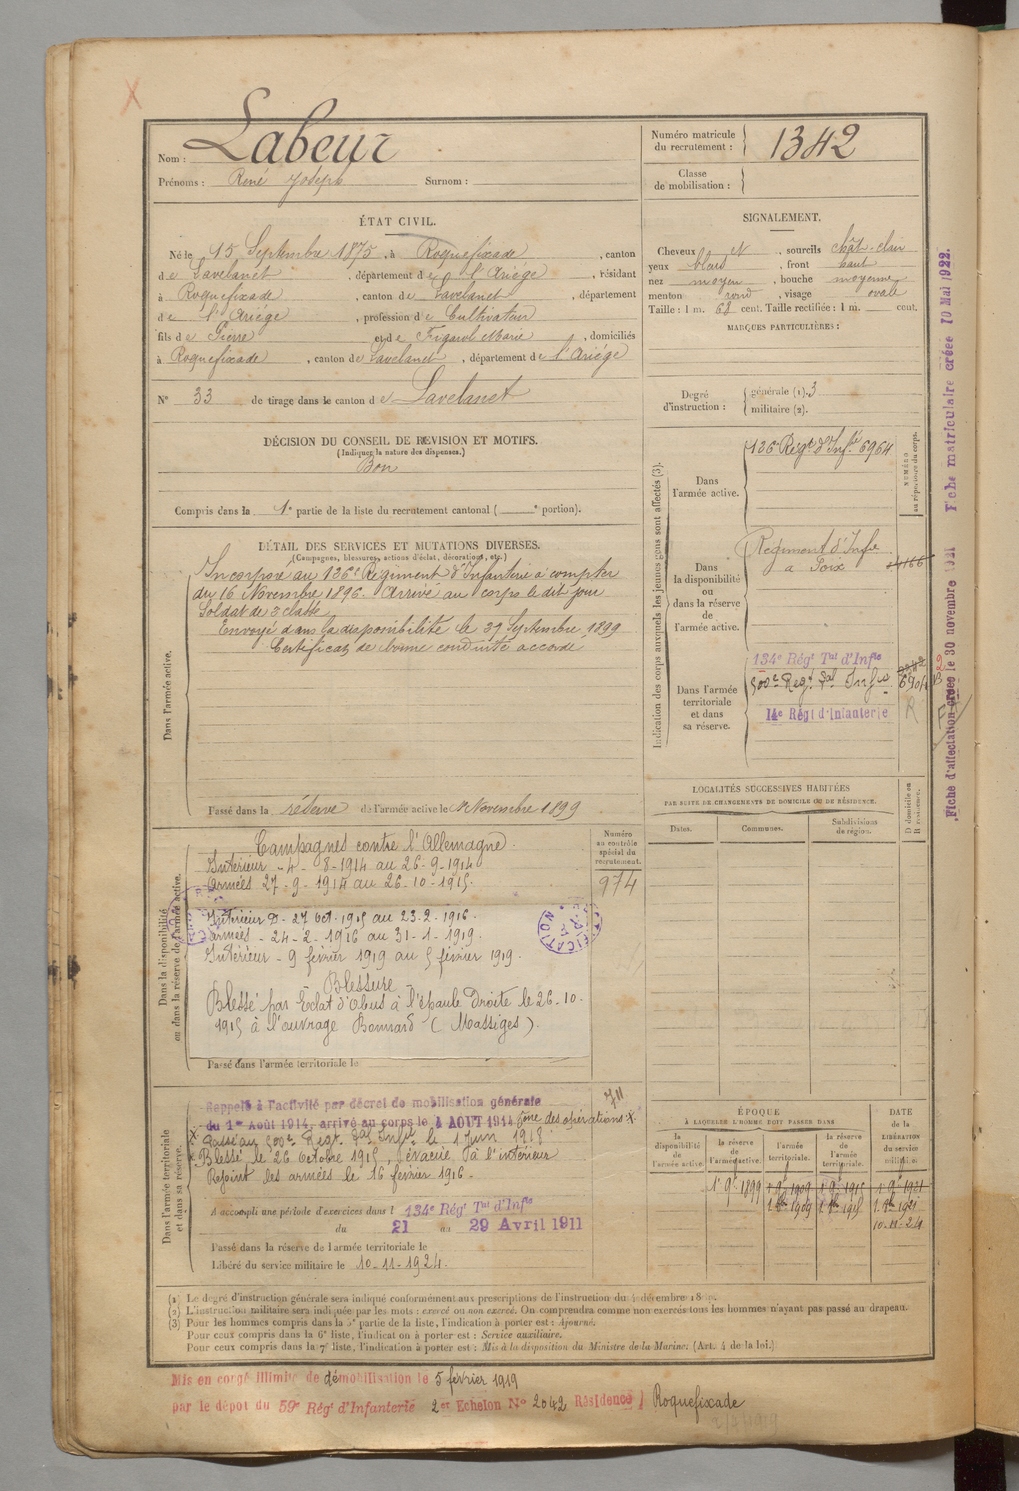 Nom : Labeur
Prénoms : René Joseph Surnom :
Numéro matricule du recrutement : 1342
Classe de mobilisation :
ÉTAT CIVIL.
Né le 15 Septembre 1875, à Roquefixade, canton
de Lavelanet, département de l'Ariège, résidant
à Roquefixade, canton de Lavelanet, département
de l'Ariège, profession de Cultivateur
fils de Pierre et de Figarol Marie, domiciliés
à Roquefixade, canton de Lavelanet, département de l'Ariége
N° 33 de tirage dans le canton de Lavelanet
DÉCISION DU CONSEIL DE REVISION ET MOTIFS.
(Indiquer la nature des dispenses.)
Bon
Compris dans la 1e partie de la liste du recrutement cantonal ( e portion).
DÉTAIL DES SERVICES ET MUTATIONS DIVERSES.
(Campagnes, blessures, actions d'éclat, décorations, etc.)
Dans l'armée active.
Incorporé au 126e Régiment d'Infanterie à compter
du 16 Novembre 1896. Arrivé au corps le dit jour
Soldat de 2e classe
Envoyé dans la disponibilité le 21 Septembre 1899
Certificat de bonne conduite accordé
Passé dans la réserve de l'armée active le 1r Novembre 1899
Dans la disponibilité ou dans la réserve de l'armée active.
Campagnes contre l'Allemagne
Intérieur - 4 - 8-1914 au 26-9-1914
Armées 27-9-1914 au 26-10-1915.
Intérieur D - 27 oct. 1915 au 23-2-1916.
Armées - 24-2-1916 au 31-1-1919.
Intérieur - 9 février 1919 au 5 février 1919.
Blessure
Blessé par Eclat d'Obus à l'épaule Droite le 26-10-
1915 à l'ouvrage Bonnard (Massiges).
Passé dans l'armée territoriale le
Numéro au contrôle spécial du recrutement.
974
Dans l'armée territoriale et dans sa réserve.
Rappelé à l'activité par décret de mobilisation générale
du 1er Août 1914, arrivé au corps le 4 AOUT 1914 Zone des opérations X.
Passé au 500e Régt. Tal Infie le 1 Juin 1915
Blessé le 26 Octobre 1915, évacué à l'intérieur
Rejoint les armées le 16 février 1916.
A accompli une période d'exercices dans l 134e Rég' Tal d'Infie
du 21 au 29 Avril 1911
Passé dans la réserve de l'armée territoriale le
Libéré du service militaire le 10-11-1924.
SIGNALEMENT.
Cheveux et, sourcils chât-clair
yeux bleus, front haut
nez moyen, bouche moyenne
menton rond, visage ovale
Taille : 1 m. 68 cent. Taille rectifiée : 1 m. cent.
MARQUES PARTICULIÈRES :
Degré d'instruction : générale (1). 3
militaire (2).
Indication des corps auxquels les jeunes gens sont affectés (3).
NUMÉRO au répertoire du corps.
Dans l'armée active.
126 Régt d'Infie 6964
Dans la disponibilité ou dans la réserve de l'armée active.
Régiment d'Infie
à Foix
Dans l'armée territoriale et dans sa réserve.
134e Régt Tal d'Infie
500e Régt Tal Infie 6904
14e Régt d'Infanterie
LOCALITÉS SUCCESSIVES HABITÉES
PAR SUITE DE CHANGEMENTS DE DOMICILE OU DE RÉSIDENCE.
Dates. Communes. Subdivisions de région. D domicile ou R résidence.
ÉPOQUE
À LAQUELLE L'HOMME DOIT PASSER DANS
la disponibilité de l'armée active. la réserve de l'armée active. l'armée territoriale. la réserve de l'armée territoriale.
DATE de la LIBÉRATION du service militaire
1r 9bre 1899 1r 9bre 1909 1r 9bre 1915 1r 9bre 1921
1 8bre 1909 1 8bre 1915 1 8bre 1921
10-11-24
(1) Le degré d'instruction générale sera indiqué conformément aux prescriptions de l'instruction du 4 décembre 1889.
(2) L'instruction militaire sera indiquée par les mots : exercé ou non exercé. On comprendra comme non exercés tous les hommes n'ayant pas passé au drapeau.
(3) Pour les hommes compris dans la 5e partie de la liste, l'indication à porter est : Ajourné.
Pour ceux compris dans la 6e liste, l'indication à porter est : Service auxiliaire.
Pour ceux compris dans la 7e liste, l'indication à porter est : Mis à la disposition du Ministre de la Marine. (Art. 4 de la loi.)
Mis en congé illimité de démobilisation le 5 février 1919
par le dépôt du 59e Rég' d'Infanterie 2er Echelon N° 2042 Résidence) Roquefixade
Fiche d'affectation créée le 30 novembre 1931 Fiche matriculaire créée 10 Mai 1922.